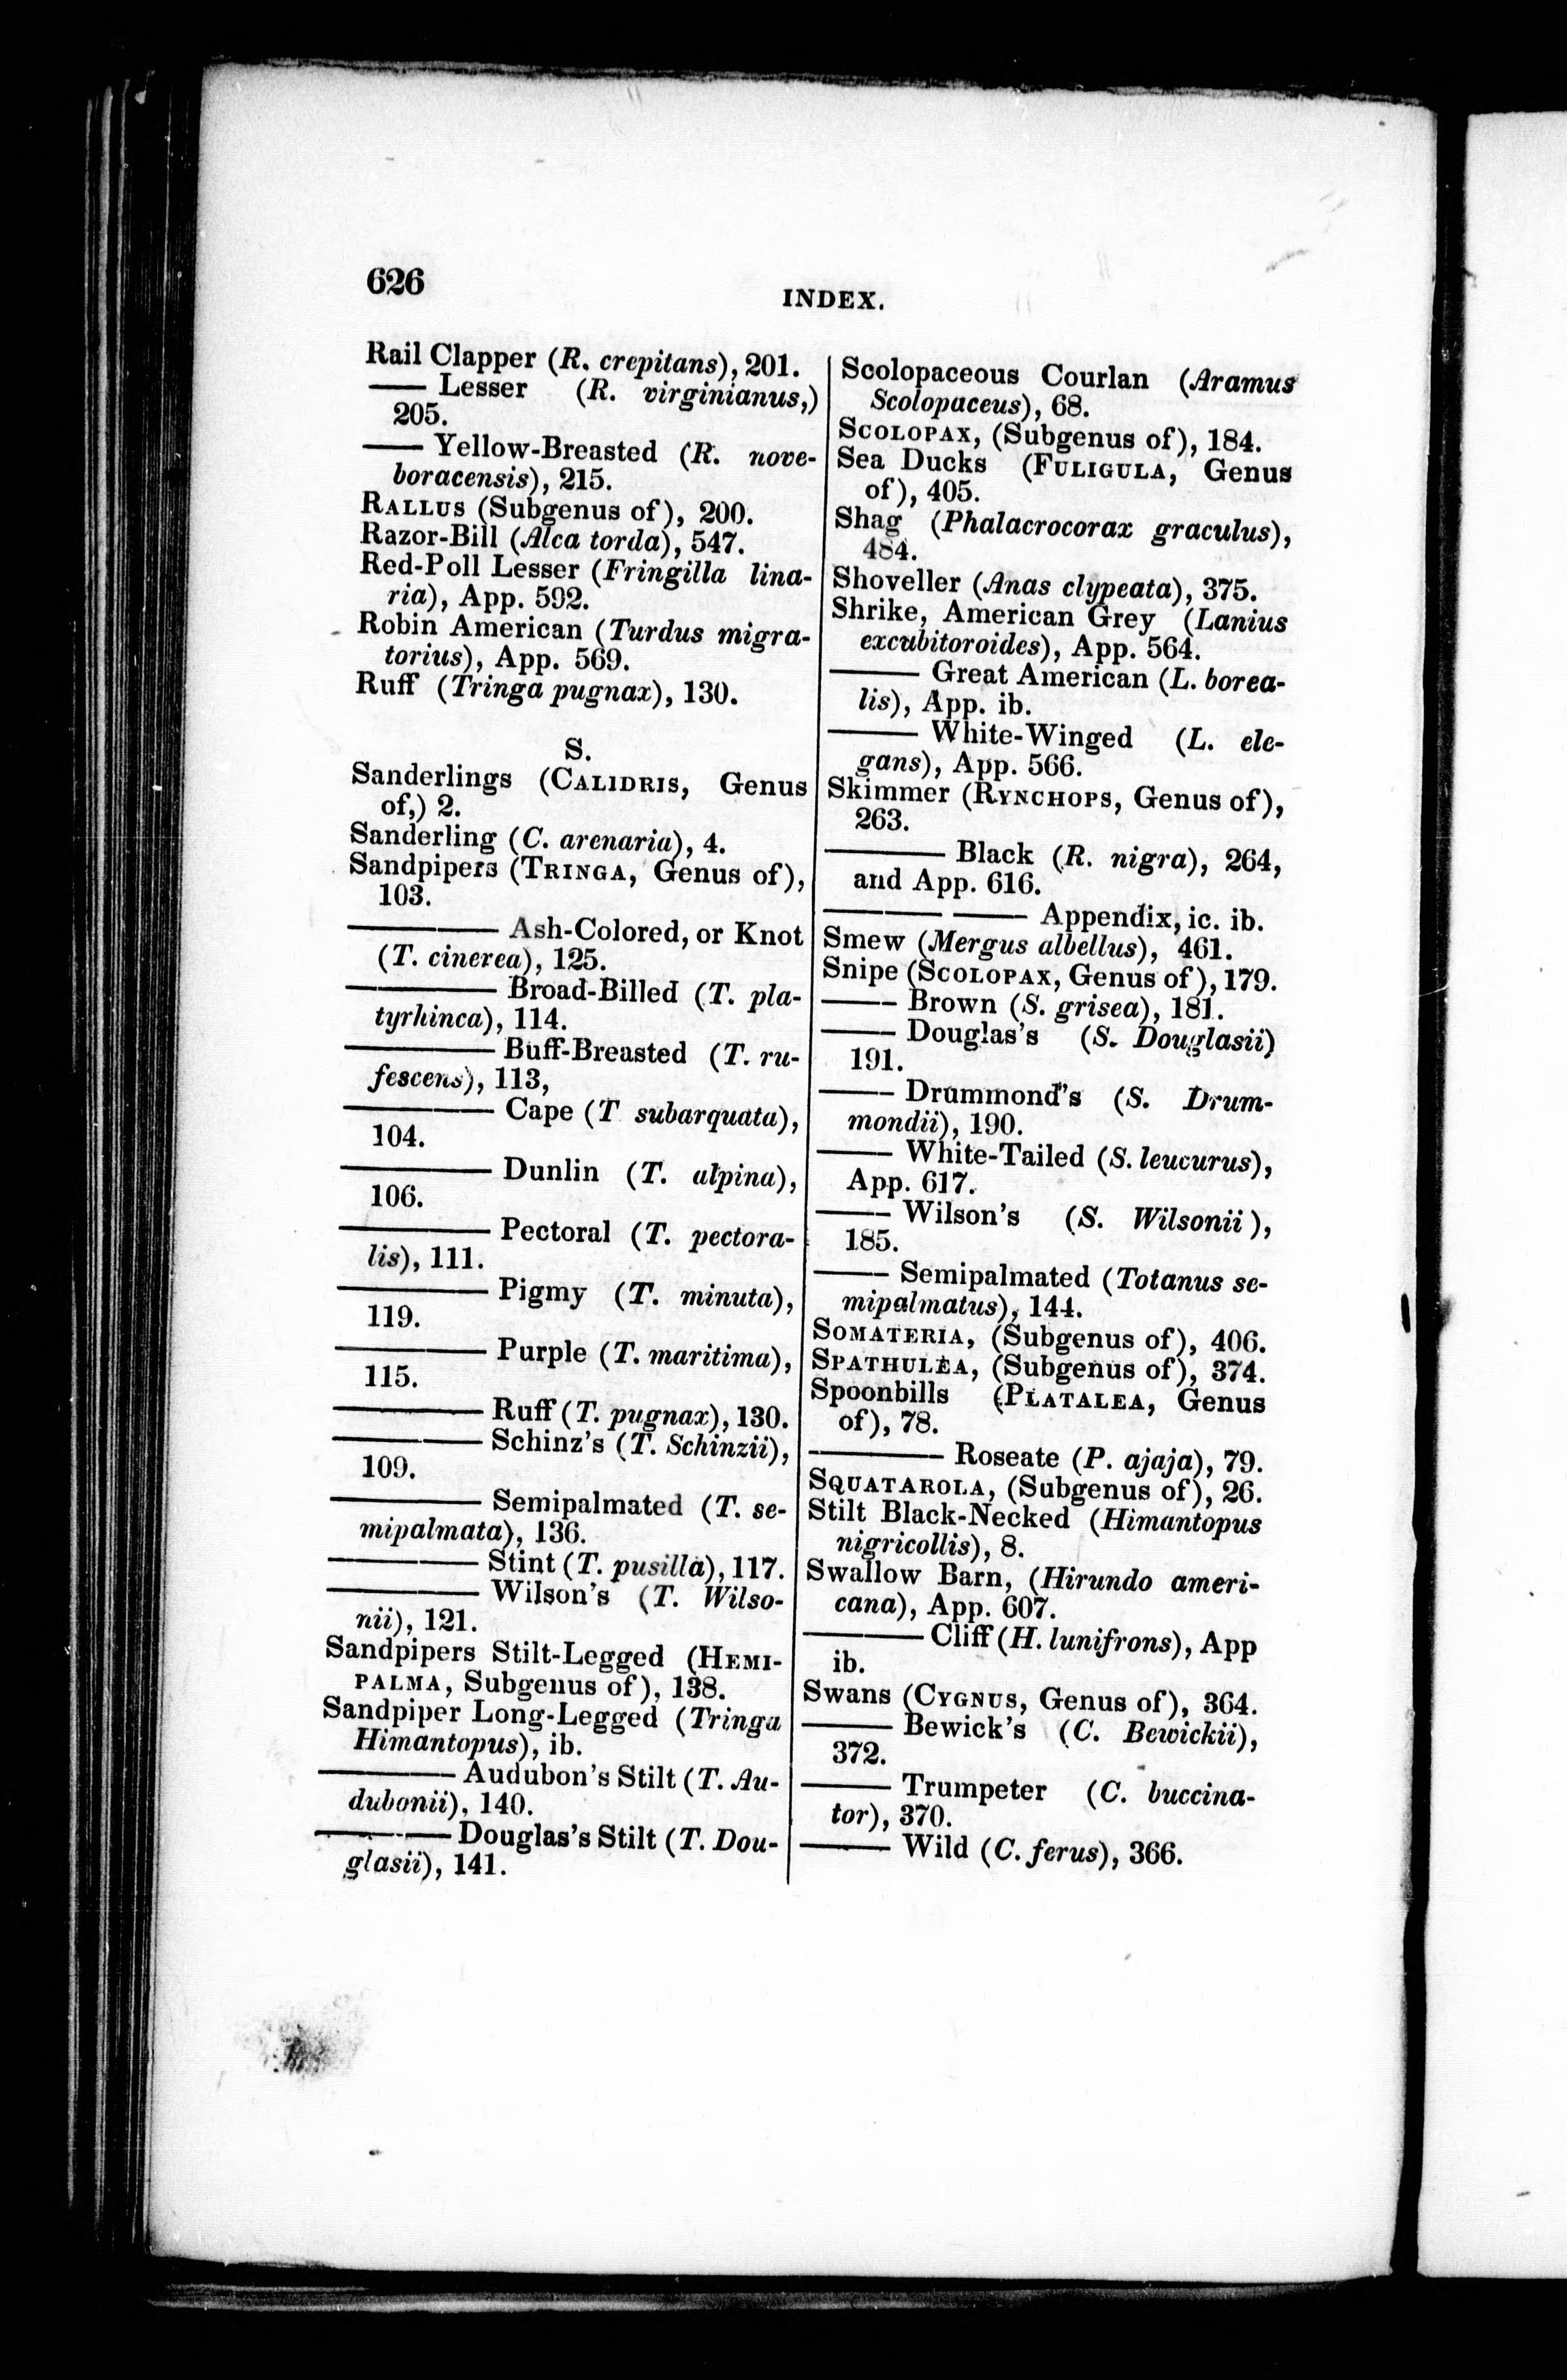 626
INDEX.
Rail Clapper (R. crepitans), 201.
—— Lesser (R. virginianus,)
205.
—— Yellow-Breasted (R. nove-
boracensis), 215.
RALLUS (Subgenus of), 200.
Razor-Bill (Alca torda), 547.
Red-Poll Lesser (Fringilla lina-
ria), App. 592.
Robin American (Turdus migra-
torius), App. 569.
Ruff (Tringa pugnax), 130.
S.
Sanderlings (CALIDRIS, Genus
of,) 2.
Sanderling (C. arenaria), 4.
Sandpipers (TRINGA, Genus of),
103.
———— Ash-Colored, or Knot
(T. cinerea), 125.
———— Broad-Billed (T. pla-
tyrhinca), 114.
———— Buff-Breasted (T. ru-
fescens), 113,
———— Cape (T subarquata),
104.
———— Dunlin (T. alpina),
106.
———— Pectoral (T. pectora-
lis), 111.
———— Pigmy (T. minuta),
119.
———— Purple (T. maritima),
115.
———— Ruff (T. pugnax), 130.
———— Schinz's (T. Schinzii),
109.
———— Semipalmated (T. se-
mipalmata), 136.
———— Stint (T. pusilla), 117.
———— Wilson's (T. Wilso-
nii), 121.
Sandpipers Stilt-Legged (HEMI-
PALMA, Subgenus of), 138.
Sandpiper Long-Legged (Tringa
Himantopus), ib.
———— Audubon's Stilt (T. Au-
dubonii), 140.
———— Douglas's Stilt (T. Dou-
glasii), 141.
Scolopaceous Courlan (Aramus
Scolopaceus), 68.
SCOLOPAX, (Subgenus of), 184.
Sea Ducks (FULIGULA, Genus
of), 405.
Shag (Phalacrocorax graculus),
484.
Shoveller (Anas clypeata), 375.
Shrike, American Grey (Lanius
excubitoroides), App. 564.
——— Great American (L. borea-
lis), App. ib.
——— White-Winged (L. ele-
gans), App. 566.
Skimmer (RYNCHOPS, Genus of),
263.
———— Black (R. nigra), 264,
and App. 616.
———— —— Appendix, ic. ib.
Smew (Mergus albellus), 461.
Snipe (SCOLOPAX, Genus of), 179.
—— Brown (S. grisea), 181.
—— Douglas's (S. Douglasii)
191.
—— Drummond's (S. Drum-
mondii), 190.
—— White-Tailed (S. leucurus),
App. 617.
—— Wilson's (S. Wilsonii),
185.
—— Semipalmated (Totanus se-
mipalmatus), 144.
SOMATERIA, (Subgenus of), 406.
SPATHULEA, (Subgenus of), 374.
Spoonbills (PLATALEA, Genus
of), 78.
———— Roseate (P. ajaja), 79.
SQUATAROLA, (Subgenus of), 26.
Stilt Black-Necked (Himantopus
nigricollis), 8.
Swallow Barn, (Hirundo ameri-
cana), App. 607.
———— Cliff (H. lunifrons), App
ib.
Swans (CYGNUS, Genus of), 364.
——— Bewick's (C. Bewickii),
372.
——— Trumpeter (C. buccina-
tor), 370.
——— Wild (C. ferus), 366.